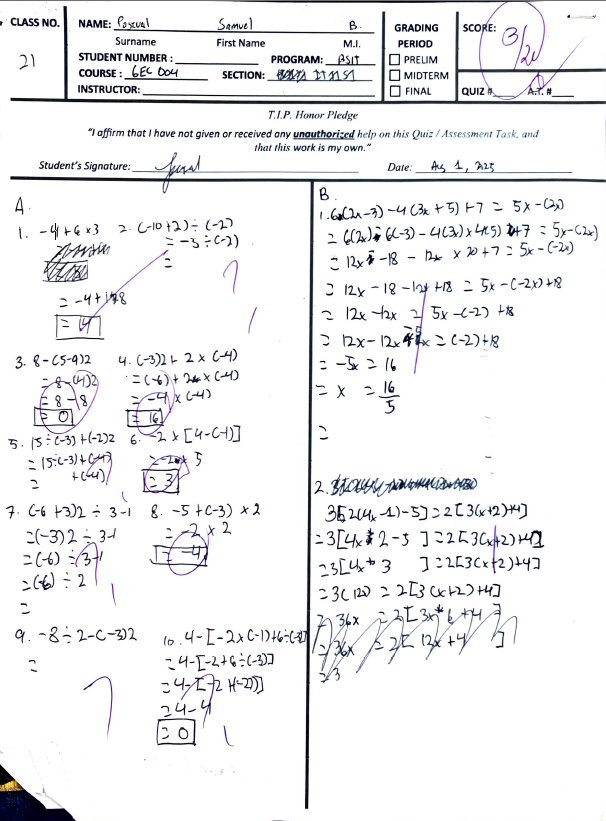 CLASS NO.
21
NAME: Pascual Samuel B.
Surname First Name M.I.
STUDENT NUMBER :
PROGRAM: BSIT
COURSE : GEC 004
SECTION: IT11S1
INSTRUCTOR:
GRADING
PERIOD
PRELIM
MIDTERM
FINAL
SCORE:
3/20
QUIZ # A.T. #
T.I.P. Honor Pledge
"I affirm that I have not given or received any unauthorized help on this Quiz / Assessment Task, and
that this work is my own."
Student's Signature:
Date: Aug 1, 2025
A.
1. -4 + 6 x 3
= -4 + 18
= 14
2. (-10+2) ÷ (-2)
= -3 ÷ (-2)
=
3. 8 - (5-9)2
= 8 - (4)2
= 8 - 8
= 0
4. (-3)2 + 2 x (-4)
= (-6) + 2 x (-4)
= -4 x (-4)
= 16
5. 15 ÷ (-3) + (-2)2
= 15 ÷ (-3) + (-4)
= + (-4)
6. -2 x [4-(-1)]
= -2 x 5
= 3
7. (-6 + 3)2 ÷ 3-1
= (-3)2 ÷ 3-1
= (-6) ÷ 3-1
= (-6) ÷ 2
=
8. -5 + (-3) x 2
= -2 x 2
= -4
9. -8 ÷ 2 - (-3)2
=
10. 4 - [-2 x (-1) + 6 ÷ (-3)]
= 4 - [-2 + 6 ÷ (-3)]
= 4 - [-2 + (-2)]
= 4 - 4
= 0
B.
1. 6(2x-3) - 4(3x+5) + 7 = 5x - (2x)
= 6(2x) 6(-3) - 4(3x) x 4(5) + 7 = 5x - (2x)
= 12x - 18 - 12x x 20 + 7 = 5x - (-2x)
= 12x - 18 - 12x + 18 = 5x - (-2x) + 18
= 12x - 12x = 5x - (-2) + 18
= 12x - 12x = (-2) + 18
= -5x = 16
= x = 16/5
=
2.
3[2(4x-1)-5] = 2[3(x+2)+4]
= 3[4x 2 - 5 ] = 2[3(x+2)+4]
= 3[4x 3 ] = 2[3(x+2)+4]
= 3(12x) = 2[3(x+2)+4]
= 36x = 2[3x 6 + 4 ]
= 36x = 2[ 12x + 4 ]
= 3